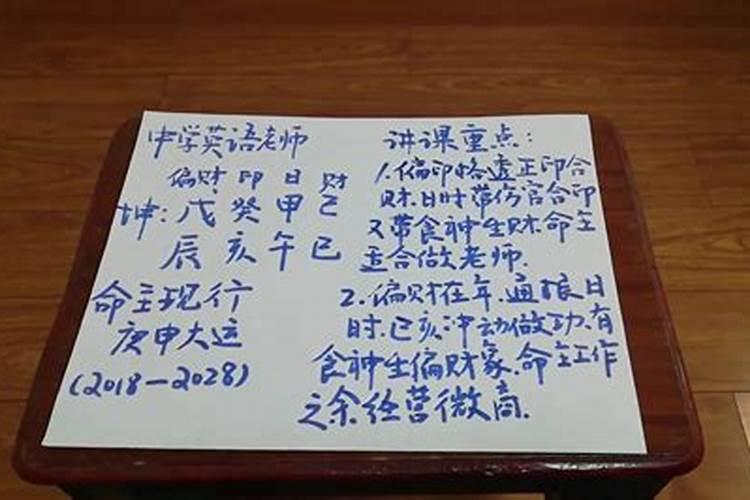 中学英语老师
偏财 印 日 财
坤: 戊 癸 甲 己
辰 亥 午 巳
命主现行
庚申大运
(2018—2028)
讲课重点:
1.偏印格透正印合
财.日时带伤官合印
又带食神生财.命主
适合做老师.
2.偏财在年.通根日
时.巳亥冲动做功.有
食神生偏财象.命主工作
之余经营微商.